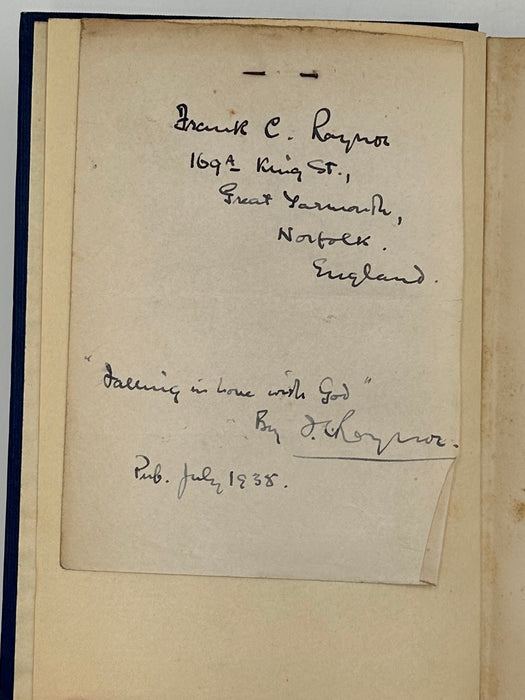 Frank C. Raynor
169A King St.,
Great Yarmouth,
Norfolk.
England.
"Falling in Love with God"
By F.C. Raynor.
Pub. July 1938.